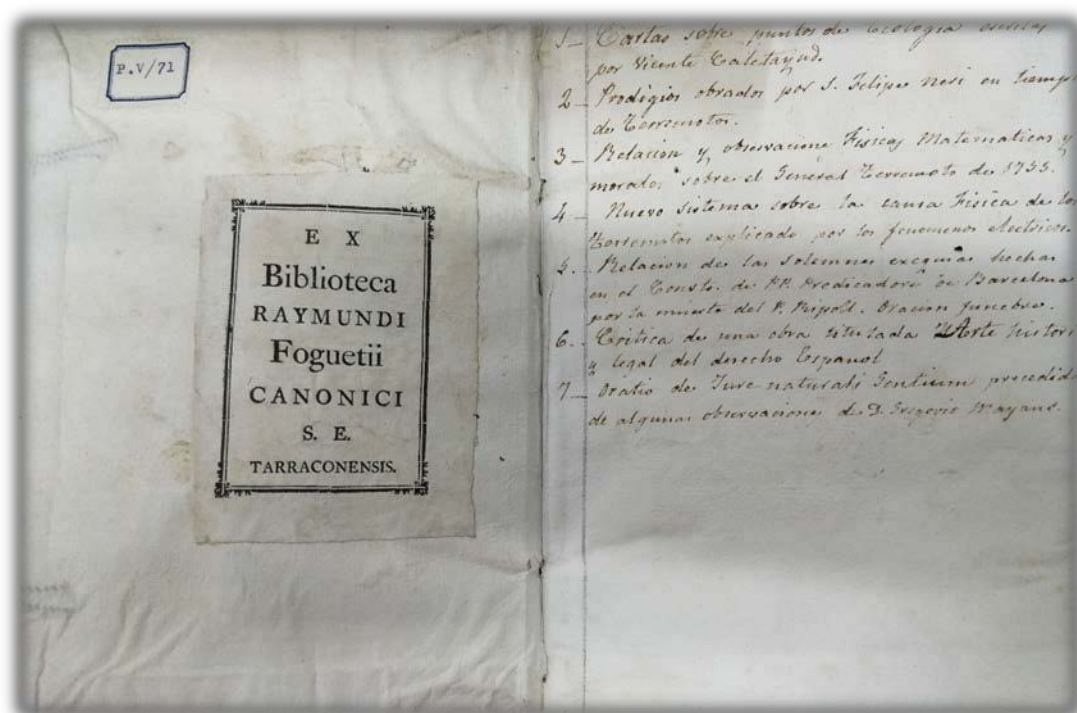 P.V/71
EX
Biblioteca
RAYMUNDI
Foguetii
CANONICI
S. E.
TARRACONENSIS.
1_ Cartas sobre puntos de Teologia escritas
por Vicente Calatayud.
2_ Prodigios obrados por S. Felipe Neri en tiempo
de Terremotos.
3_ Relacion y observacione Fisicas Matematicas y
morales sobre el General Terremoto de 1755.
4_ Nuevo sistema sobre la causa Fisica de los
Terremotos explicado por los fenomenos electricos.
5_ Relacion de las solemnes exequias hechas
en el Convto. de PP. Predicadors de Barcelona
por la muerte del P. Ripoll. Oracion funebre.
6_ Critica de una obra titulada Arte histori
legal del derecho Español
7_ Oratio de Jure naturali Gentium precedida
de algunas observaciones de D. Gregorio Mayans.